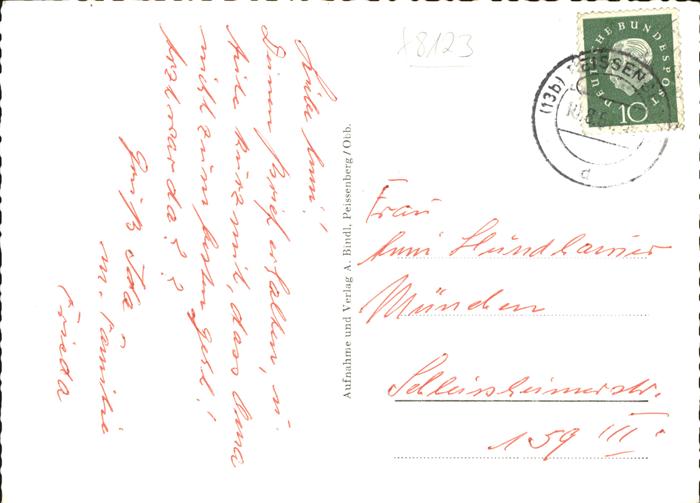 Liebe Anni!
Deinen Brief erhalten, u.
teile kurz mit, dass Oma
nicht zum besten geht!
Arzt war da? ?
Gruß Ida
m. Familie
Frieda
Aufnahme und Verlag A. Bindl, Peissenberg/Obb.
8123
DEUTSCHE BUNDESPOST
10
(13b) PEISSENBERG
d
Frau
Anni Hundhamer
München
Schleissheimerstr.
159 III.